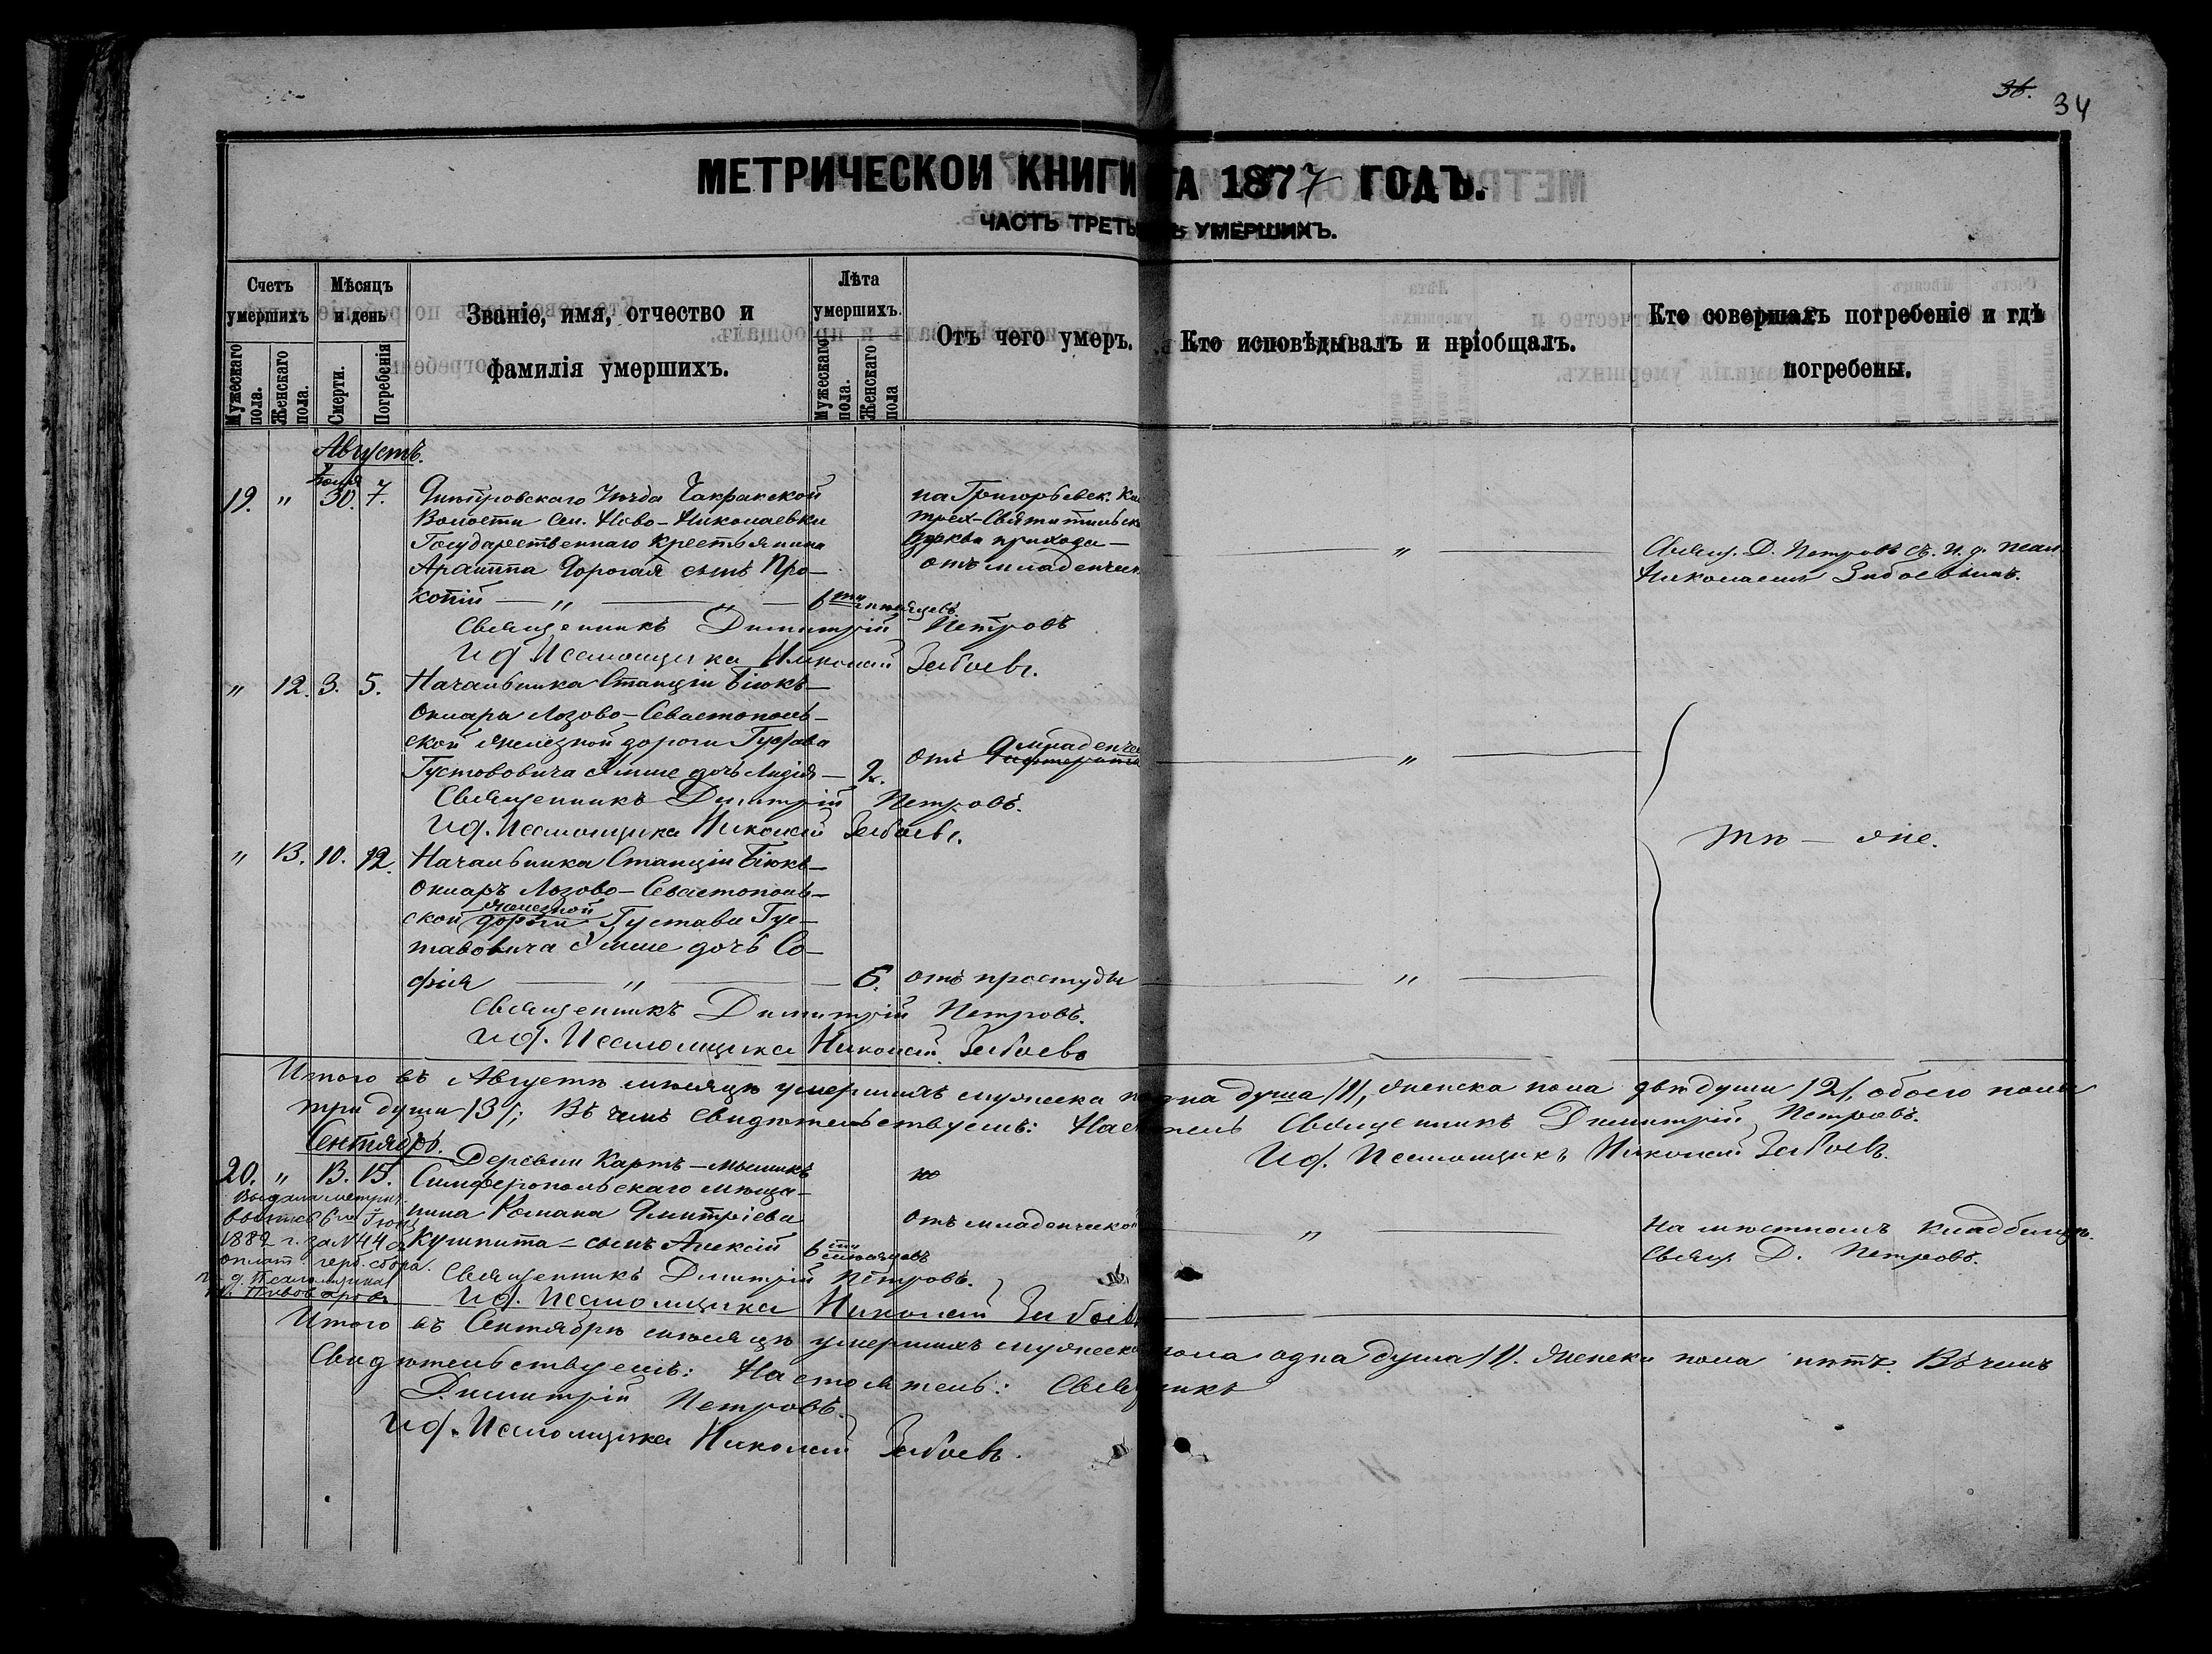 36. 34
МЕТРИЧЕСКОЙ КНИГИ НА 1877 ГОДЪ.
ЧАСТЬ ТРЕТЬЯ УМЕРШИХЪ.
Счетъ умершихъ
Мужескаго пола.
Женскаго пола.
Мѣсяцъ и день
Смерти.
Погребенія
Званіе, имя, отчество и
фамилія умершихъ.
Лѣта умершихъ.
Мужескаго пола.
Женскаго пола
Отъ чего умеръ.
Кто исповѣдывалъ и пріобщалъ.
Кто совершалъ погребеніе и гдѣ
погребены.
Августъ.
19. " 30. 7. Днѣпровскаго Уѣзда Чакракской
Волости сел. Ново-Николаевки
Государственнаго крестьянина
сынъ Про-
копій — " — 6ти мѣсяцевъ
на Григорьевск.
трех-Святительск
Церкви прихода —
отъ младенческ
"
Свящ. Д. Петровъ съ и. д. псал.
Николаемъ
Священникъ Димитрій Петровъ
И д. Псаломщика Николай
" 12. 3. 5. Начальника Станціи Біюкъ-
Онлара Лозово-Севастополь-
ской желѣзной дороги Густава
Густововича дочь Лидія — 2.
отъ младенчес
"
Священникъ Димитрій Петровъ.
И д. Псаломщика Николай
тѣ — же.
" 13. 10. 12. Начальника Станціи Біюкъ-
Онларъ Лозово-Севастополь-
ской желѣзной дороги Густава Гус-
тавовича дочь Со-
фія — " — 5. отъ простуды
"
Священникъ Димитрій Петровъ.
И д. Псаломщика Николай
Итого въ Августѣ мѣсяцѣ умершихъ мужеска одна душа /1/, женска пола двѣ души /2/, обоего пола
три души /3/; Въ чемъ свидѣтельствуемъ: Священникъ Димитрій Петровъ.
И д. Псаломщикъ Николай
Сентябрь.
20. " 13. 15. Деревни
Симферопольскаго мѣща-
нина Романа Дмитріева
сынъ Алексій 6ти мѣсяцевъ
отъ младенческой
"
На мѣстномъ кладбищѣ.
Свящ. Д. Петровъ.
Выдана метрич.
6го
1882 г. за №44
оплат. герб. сбора.
д. Псаломщика
Священникъ Димитрій Петровъ.
И д. Псаломщика Николай
Итого въ Сентябрѣ мѣсяцѣ умершихъ мужеска пола одна душа /1/. женска пола нѣтъ. Въ чемъ
Свидѣтельствуемъ: Настоятель: Священникъ
Димитрій Петровъ.
И д. Псаломщика Николай